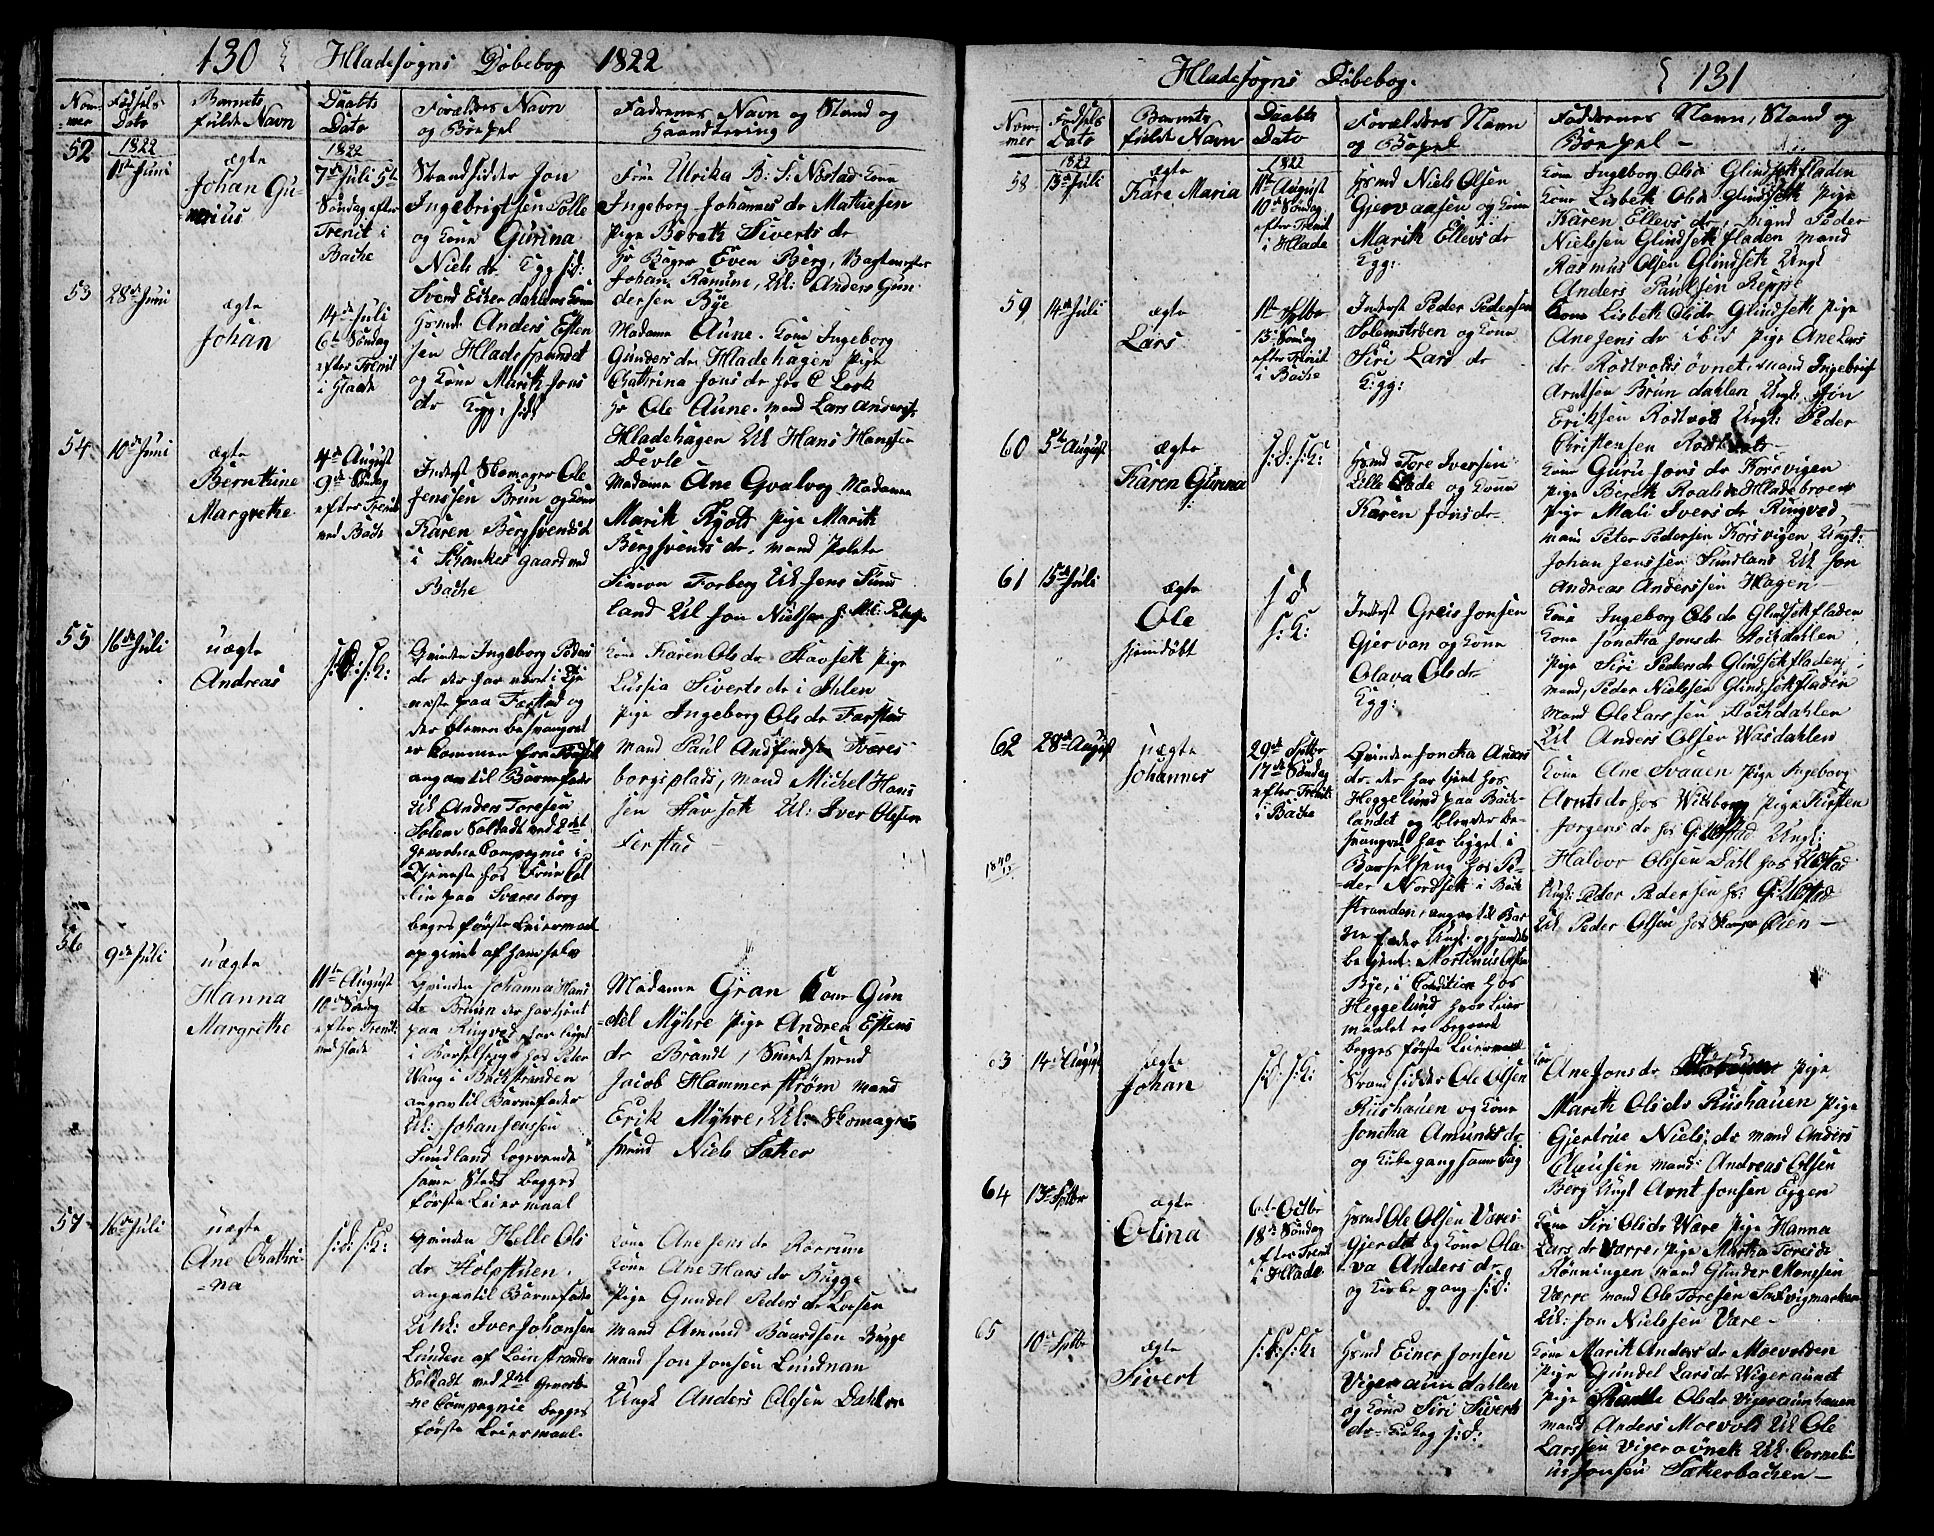 130 Hladesogns Döbebog 1822
Nom-mer
Fødsels Dato
Barnets fulde Navn
Daabts Dato
Forældres Navn og Bopæl
Faddernes Navn og Stand og Haandtering
52
1822
11te Juni
ægte
Johan Gu-
nerius
1822
7de Juli 5te
Söndag efter
Trenit i
Bache
Strandsidder Jon
Ingebrigtsen Polle
og Kone Gurina
Niels dr
Frue Ulrika B: S: Nostad Kone
Ingeborg Johannes dr Mathiesen
Pige Bereth Siverts dr
Hr Bager Even Berg,
Johan Ramune, Uk: Anders Gun
dersen Bÿe
53
28de Juni
ægte
Johan
14de Juli
6te Söndag
efter Trenit
i Hlade
Hsmd Anders Esten
sen Hladesspundet
og Kone Marith Jons
dr Kgg: s:d:
Madame Aune. Kone Ingeborg
Gunders dr Hladehagen Pige
Cathrina Jons dr hos C Lerk
Hr Ole Aune. mand Lars Anders
Hladehagen Uk Hans Hanssen
Devle
54
10de Juni
ægte
Bernthine
Margrethe
4de August
9de Söndag
efter Trenit
ved Bache
Inderst Skomager Ole
Jenssen Brun og Kone
Karen Bergsvends d
i Schankes gaard ved
Bache
Madame Ane Qvalvog Madame
Marith Pige Marith
Bergsvends dr. mand
Simon Forberg Uk Jens Sund
land Uk Jon Nielsen
55
16de Juli
uægte
Andreas
s:D: s:K:
Qvinden Ingeborg Peders
dr der har været i Tje
neste paa Farstad og
der bleven besvangret
er kommen fra
angav til Barnefader
Uk Anders Toresen
Solem Soldat ved 2det
Gevorbne Compagnie i
Tjeneste hos Frue Col
lin paa Sværesborg
begges første Leiermaal
opgivet af ham selv
Kone Karen Ols dr Stavseth Pige
Lussia Siverts dr i Ihlen
Pige Ingeborg Ols dr Farstad
mand Paul Andfindsen Sværes
borgsplads, mand Michel Hans
sen Stavseth Uk: Iver Olsen
Ferstad
56
9de Juli
uægte
Hanna
Margrethe
11te August
10de Söndag
efter Trenit:
ved Hlade
Qvinden Johanna Hans
dr Bruun der har tjent
paa Ringved, har ligget
i Barselseng hos Peder
Wang i Backstranden
angav til Barnefader
Uk: Johan Jenssen
Sundland Logerende
samme Steds begges
første Leiermaal
Madame Gran Kone Gun
del Mÿhre Pige Andrea Estens
dr Brandt, Smedesvend
Jacob Hammerstrøm mand
Erik Mÿhre, Uk: Skomager
svend Niels Sæther
57
16de Juli
uægte
Ane Cathri
-na
s:d: s:K:
Qvinden Helle Ols
dr Holpstuen.
angav til Barnefader
Uk: Iver Johansen
Lunden af Leinstranden
Soldat ved 2det Gevorb
ne Compagnie begges
første Leiermaal
Kone Ane Jens dr
Kone Ane Hans dr Bugge
Pige Gundel Peders dr Loesen
mand Amund Baardsen Bugge
mand Jon Jonsen Lundnan
Ungk Anders Olesen Dahlen
Hladesogns Döbebog. 131
Nom-mer
Fødsels Dato
Barnets fulde Navn
Daabts Dato
Forældres Navn og Bopæl
Faddernes Navn, Stand og Boepel
58
1822
13de Juli
ægte
Kare Maria
1822
11te August
10de Söndag
efter Trenit
i Hlade
Hsmd Niels Olsen
Gjervansen og Kone
Marith Ellevs dr
Kgg:
Kone Ingeborg Ols dr Glindsethfladen
Kone Lisbeth Ols dr Glindseth Pige
Karen Ellevs dr, mand Peder
Nielsen Glindsethfladen mand
Rasmus Olsen Glindseth Ungk
Anders Paulsen Reppe
59
14de Juli
ægte
Lars
1ste Septbr
13de Söndag
efter Trenit
i Bache
Inderst Peder Pedersen
Solemströen og Kone
Siri Lars dr
Kgg:
Kone Lisbeth Ols dr Glindseth Pige
Ane Jens dr ibid Pige Ane Lars
dr Rodtvoldsøvnet, mand Ingebrigt
Arntsen Brundahlen Ungk: Jon
Eriksen Rodtvold Ungk: Peder
Christensen Rodtvold
60
5te August
ægte
Karen Gurina
s:d: s:K:
Hsmd Tore Iversen
Lille Lade og Kone
Karen Jons dr
Kone Guru Jons dr Korsvigen
Pige Bereth Roalds Hladebroen
Pige Mali Ivers dr Ringved
mand Peter Pedersen Korsvigen Ungk:
Johan Jenssen Sundland Uk Jon
Andreas Anderssen Hagen
61
15de Juli
ægte
Ole
hjemdöbt
s d
s:K:
Inderst Greis Jonsen
Gjervan og Kone
Olava Ols dr
Kgg:
Kone Ingeborg Ols dr Glindsethfladen
Kone Jonetha Jons dr Stochdahlen
Pige Siri Peders dr Glindsethfladen
mand, Peder Nielssen Glindsethfladen
mand Ole Larssen Stochdahlen
Uk Anders Olsen Wasdahlen
62
28de August
uægte
Johannes
29de Septbr
17de Söndag
efter Trenit
i Bache
Qvinden Jonetha Anders
dr. der har tjent hos
Heggelund paa Bach-
landet og bleven be-
svangret har ligget i
Barselseng hos Pe-
der Nordseth i Bach
stranden, angav til Bar
ne fader Ungk: og Handels
betjent: Martinus Olsen
Bÿe, i Condition hos
Heggelund hvor Leier
maalet er begaaet
begges første Leiermaal
Kone Ane Svauen Pige Ingeborg
Arnts dr hos Wittborg Pige Kirsten
Jorgens dr hos G: Ungk:
Halvor Olsen Dahl hos
Ungk: Peder Pedersen hos: G:
Uk Peder Olsen hos Kampe Öien
1840
63
14de August
ægte
Johan
s:d: s:K:
Strandsidder Ole Olsen
Rushauen og Kone
Jonetha Amunds dr
og Kirkegang samme Dag
Kone Ane Jons dr Pige
Marith Ols dr Rushauen Pige
Gjertrue Niels dr mand Anders
Clausen mand: Andreas Olsen
Berg Ungk Arnt Jonsen Eggen
64
13de Septbr
ægte
Olina
6te Octbr
18de Söndag
efter Trenit
i Hlade
Hsmd Ole Olsen Væres
Gjerdet og Kone Ola-
va Anders dr
og Kirkegang s:d:
Kone Siri Ols dr Være Pige Hanna
Lars dr Værre, Pige Martha Tores dr
Rønningen mand Gunder Monssen
Værre mand Ole Toresen Saxvigmarken
Uk: Jon Nielssen Være
65
10de Septbr
ægte
Sivert
s:d: s:K:
Hsmd Einer Jonsen
Vigeraundahlen
og Kone Siri Siverts
dr. Kirkeg s:d:
Kone Marith Anders dr Moevolden
Pige Gundel Lars dr Wigeraunet
Pige Ols dr Vigeraunhauen
mand Anders Moevold Uk Ole
Larssen Vigerøvneth Uk: Corneli
us Jonsen Sætherbachen